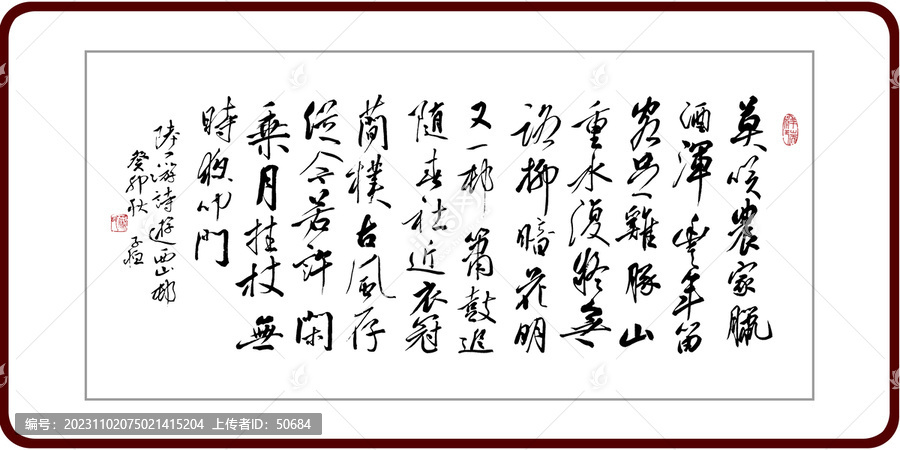 莫笑農家臘
酒渾豐年留
客足雞豚山
重水復疑無
路柳暗花明
又一邨簫鼓追
随春社近衣冠
簡樸古風存
從今若許閑
乘月拄杖無
時夜叩門
陸游詩遊西山邨
癸卯秋 子恒
编号：20231102075021415204 上传者ID：50684